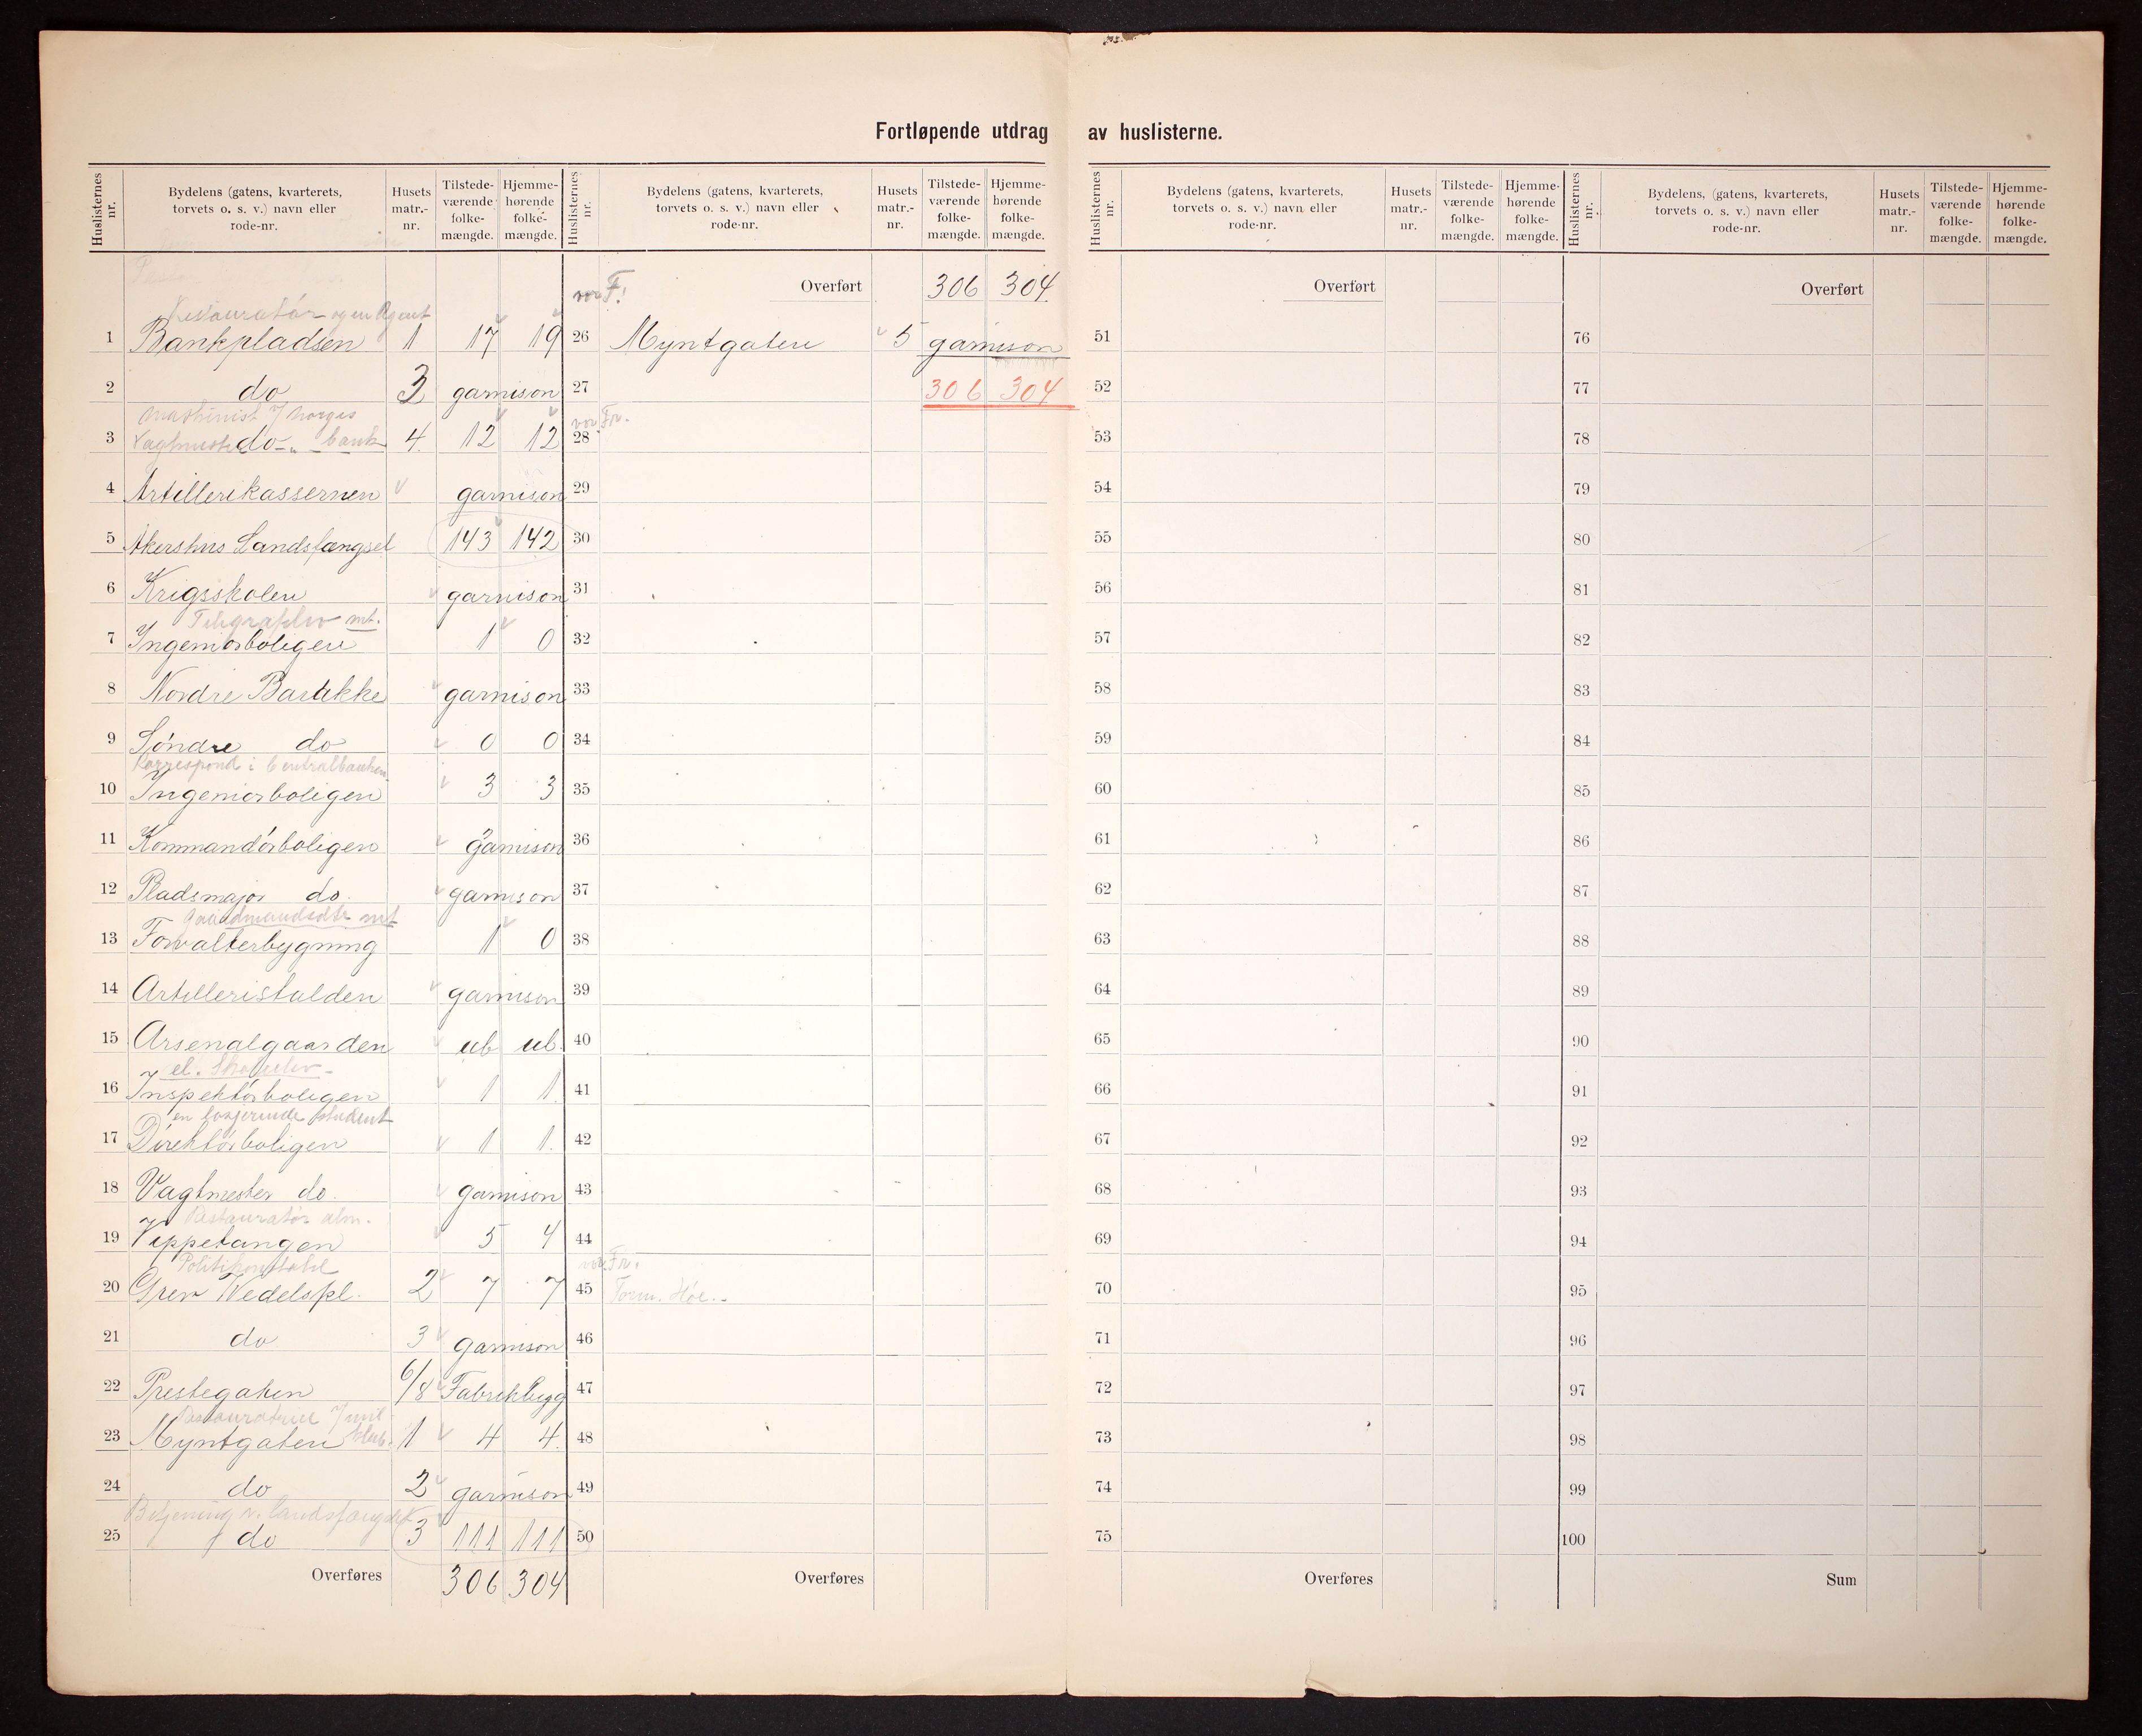 Fortløpende utdrag av huslisterne.
Huslisternes nr. Bydelens (gatens, kvarterets, torvets o. s. v.) navn eller rode-nr. Husets matr.-nr. Tilstede-værende folke-mængde. Hjemme-hørende folke-mængde.
Restauratør og en Agent
1 Bankpladsen 1 17 19
2 do 3 garnison
Maskinist i Norges
3 Vagtmester do bank 4. 12 12
4 Artillerikassernen garnison
5 Akershus Landsfængsel 143 142
6 Krigsskolen garnison
Telegrafelev mt.
7 Ingeniørboligen 1 0
8 Nordre Bastekke garnison
9 Søndre do 0 0
Korrespond i Centralbanken
10 Ingeniørboligen 3 3
11 Kommandørboligen garnison
12 Pladsmajor do. garnison
mt
13 Forvalterbygning 1 0
14 Artilleristalden garnison
15 Arsenalgaarden ub ub.
el.
16 Inspektørboligen 1 1
en losjerende student
17 Direktørboligen 1 1.
18 Vagtmester do. garnison
Restauratør alm.
19 Vippetangen 5 4
Politikonstabel
20 Grev Wedelspl. 2 7 7
21 do 3 garnison
22 Prestegaten 6/8 Fabrikbygg
Restauratrice i mil.
23 Myntgaten klub. 1 4 4.
24 do 2 garnison
Betjening v. Landsfængslet
25 do 3 111 111
Overføres 306 304
Huslisternes nr. Bydelens (gatens, kvarterets, torvets o. s. v.) navn eller rode-nr. Husets matr.-nr. Tilstede-værende folke-mængde. Hjemme-hørende folke-mængde.
Overført 306 304.
26 Myntgaten 5 garnison
27 306 304
28
29
30
31
32
33
34
35
36
37
38
39
40
41
42
43
44
45
46
47
48
49
50
Overføres
Huslisternes nr. Bydelens (gatens, kvarterets, torvets o. s. v.) navn eller rode-nr. Husets matr.-nr. Tilstede-værende folke-mængde. Hjemme-hørende folke-mængde.
Overført
51
52
53
54
55
56
57
58
59
60
61
62
63
64
65
66
67
68
69
70
71
72
73
74
75
Overføres
Huslisternes nr. Bydelens, (gatens, kvarterets, torvets o. s. v.) navn eller rode-nr. Husets matr.-nr. Tilstede-værende folke-mængde. Hjemme-hørende folke-mængde.
Overført
76
77
78
79
80
81
82
83
84
85
86
87
88
89
90
91
92
93
94
95
96
97
98
99
100
Sum